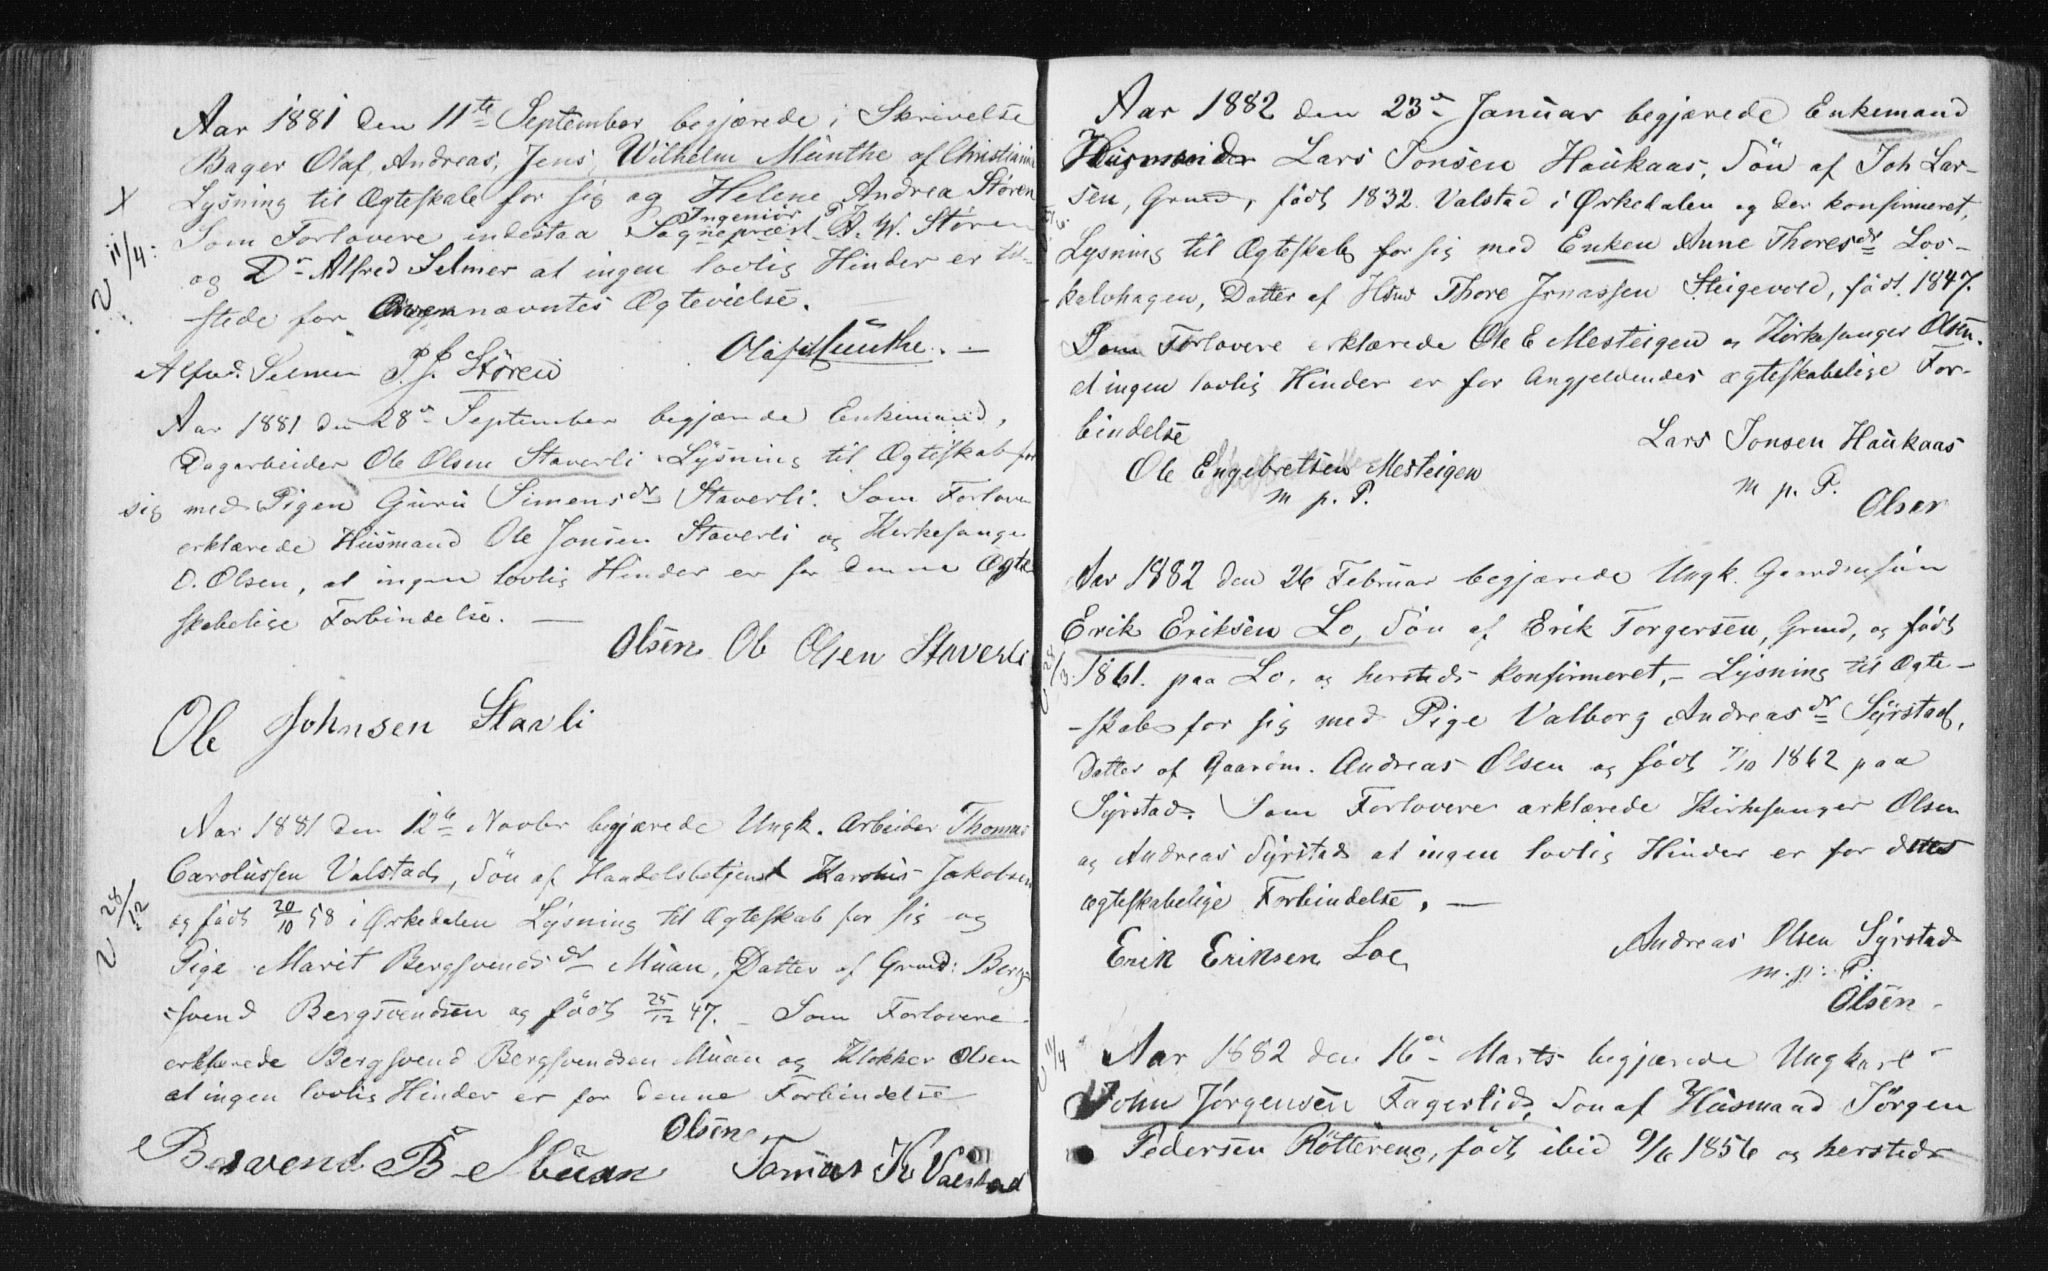 Aar 1881 den 11te September begjærede i Skrivelse
Bager Olaf Andreas Jens Wilhelm Munthe af Christiania
Lysning til Ægteskab for sig og Helene Andrea Støren
Som Forlovere indestaa Ingeniør P. J.
Sogneprest A. W. Støren
X
V 11/4.
og Dr Alfred Selmer at ingen lovlig Hinder er til-
stede for nævntes Ægtevielse.
Olaf Munthe. —
Alfred Selmer P. J. Støren
Aar 1881 den 28de September begjærede Enkemand,
Dagarbeider Ole Olsen Staverli Lysning til Ægteskab for
sig med Pigen Guru Simensdr Staverli. Som Forlovere
erklærede Husmand Ole Jonsen Staverli og Kirkesanger
O. Olsen, at ingen lovlig Hinder er for denne Ægte
skabelige Forbindelse. —
Olsen Ole Olsen Staverli
Ole Johnsen Stavli
Aar 1881 den 12te Novbr begjærede Ungk. Arbeider Thomas
Carolussen Valstad, Søn af Handelsbetjent Karolus Jakobsen
V 28/12
og født 20/10 58 i Ørkedalen Lysning til Ægteskab for sig og
Pige Marit Bergsvendsdr Muan, Datter af Grmd: Berg-
-svend Bergsvendsen og født 25/12 47. – Som Forlovere
erklærede Bergsvend Bergsvendsen Muan og Klokker Olsen
at ingen lovlig Hinder er for denne Forbindelse
Olsen
Bersvend B. Muan Tomas K Valstad
Aar 1882 den 23de Januar begjærede Enkemand
Husmand Lars Jonsen Haukaas, Søn af Joh Lar-
sen, Grmd, født 1832 Valstad i Ørkedalen og der konfirmeret,
Lysning til Ægteskab for sig med Enken Anne Thoresdr Los-
kalvhagen, Datter af Hsmd Thore Jonassen Steigevold, født 1847.
Som Forlovere erklærede Ole E Mesteigen og Kirkesanger Olsen.
at ingen lovlig Hinder er for Angjeldendes ægteskabelige For-
bindelse
Lars Jonsen Haukaas
m p. P.
Ole Engebretsen Mesteigen
m p. P.
Olsen
Aar 1882 den 26 Februar begjærede Ungk. Gaardmsøn
Erik Eriksen Lo, Søn af Erik Torgersen, Grmd, og født
V 28/3.
1861. paa Lo, og hersteds konfirmeret, – Lysning til Ægte-
-skab for sig med Pige Valborg Andreasdr Syrstad,
Datter af Gaardm. Andreas Olsen og født 7/10 1862 paa
Syrstad. Som Forlovere erklærede Kirkesanger Olsen
og Andreas Syrstad at ingen lovlig Hinder er for dette
ægteskabelige Forbindelse. —
Erik Eriksen Loe
Andreas Olsen Syrstad
m. p: P:
Olsen
V 11/4
Aar 1882 den 16de Marts begjærede Ungkarl
John Jørgensen Fagerlid, Søn af Husmand Jørgen
Pedersen Røttereng, født ibid 9/6 1856 og hersteds